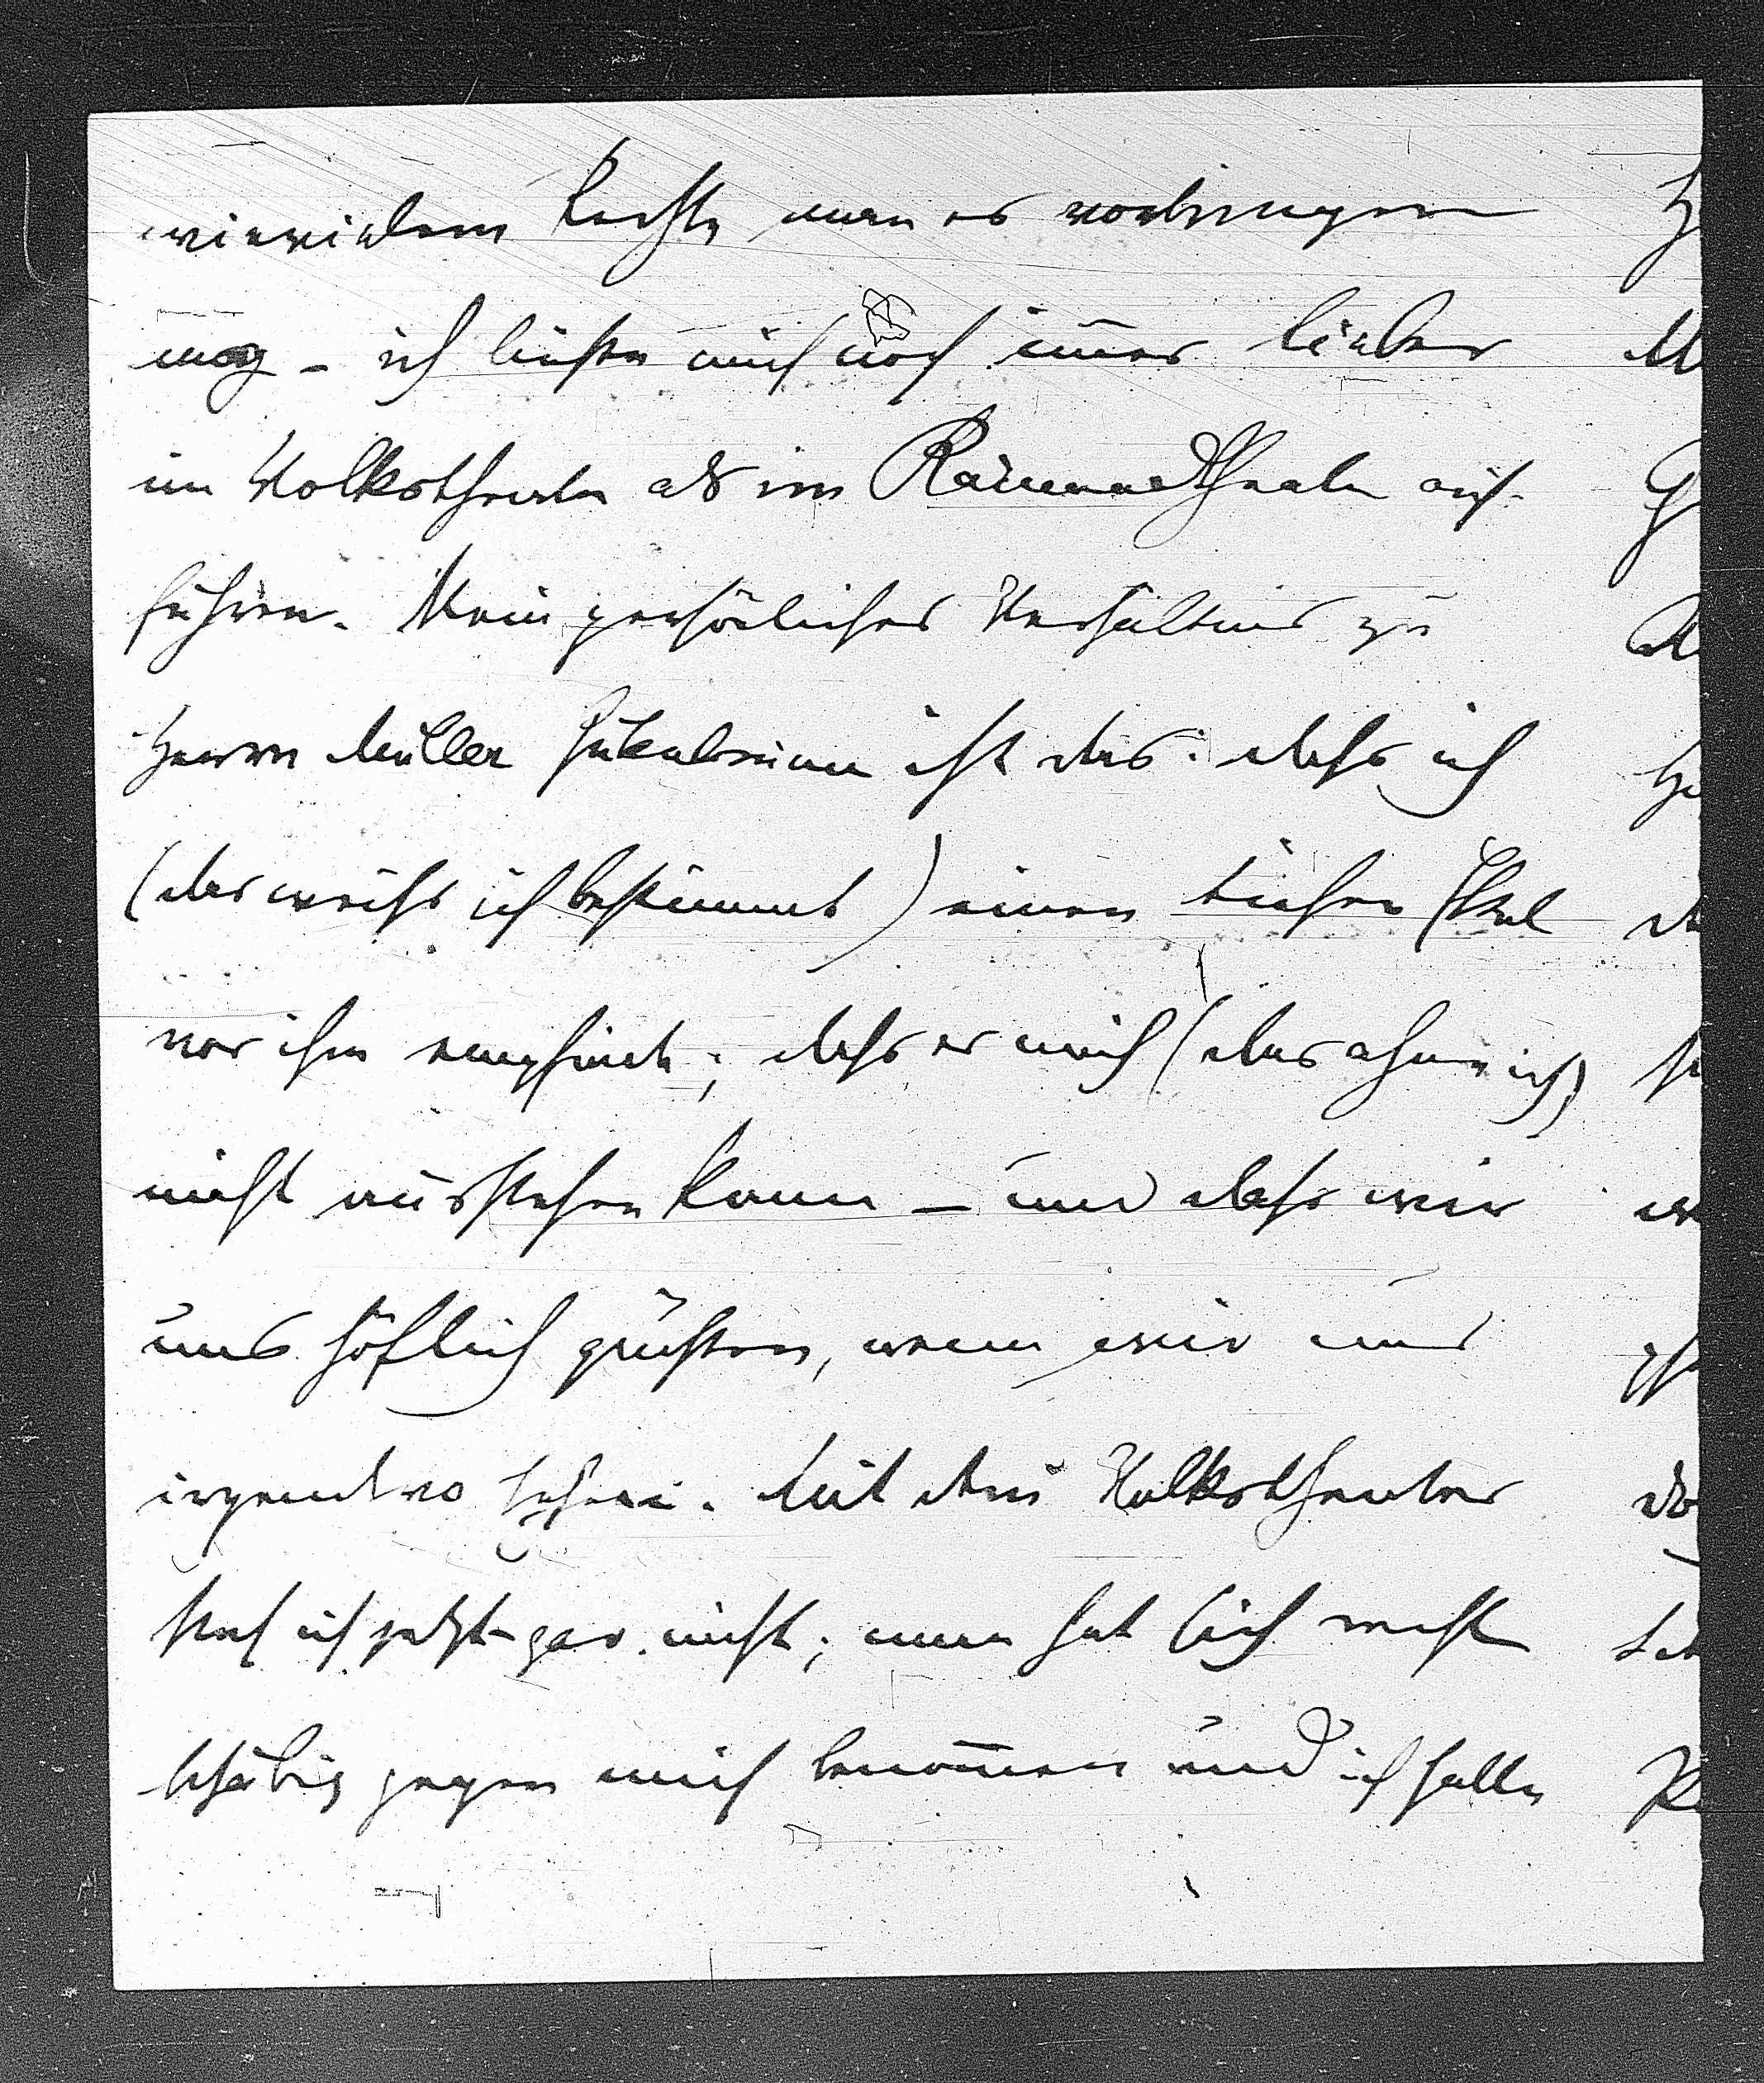 wievielem Rechte man es vorbringen
mag – ich ließe mich noch im̅er lieber
im Volkstheater als im Raimundtheater auf-
führen. Mein persönliches Verhältnis zu
Herrn Müller Gutenbrunn ist das: dass ich
(das weiß ich bestimmt) einen tiefen Ekel
vor ihm empfinde; dass er mich (das ahne ich)
nicht ausstehen kann – und dass wir
uns höflich grüßen, wenn wir uns
irgendwo sehen. Mit dem Volkstheater
steh ich jetzt gar nicht; man hat sich recht
schäbig gegen mich beno̅men und ich halte